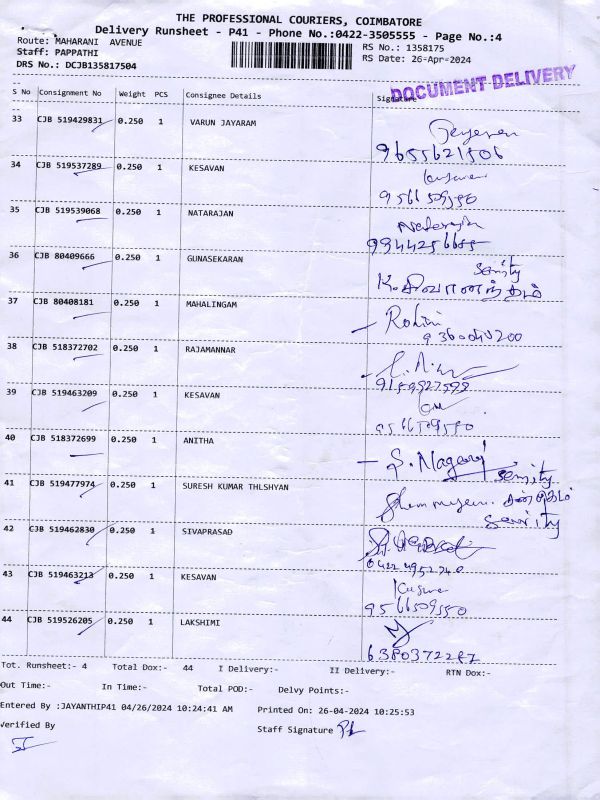 THE PROFESSIONAL COURIERS, COIMBATORE
Delivery Runsheet - P41 - Phone No.:0422-3505555 - Page No.:4
Route: MAHARANI AVENUE RS No.: 1358175
Staff: PAPPATHI RS Date: 26-Apr-2024
DRS No.: DCJB135817504
DOCUMENT DELIVERY
S No Consignment No Weight PCS Consignee Details Signature
33 CJB 519429831 0.250 1 VARUN JAYARAM Jayaram
9655621506
34 CJB 519537289 0.250 1 KESAVAN
9566509550
35 CJB 519539068 0.250 1 NATARAJAN Natarajan
9944256655
36 CJB 80409666 0.250 1 GUNASEKARAN
37 CJB 80408181 0.250 1 MAHALINGAM Rohini
9360040200
38 CJB 518372702 0.250 1 RAJAMANNAR
9159927598
39 CJB 519463209 0.250 1 KESAVAN
9566509550
40 CJB 518372699 0.250 1 ANITHA S. Nagaraj
41 CJB 519477974 0.250 1 SURESH KUMAR THLSHYAN
42 CJB 519462830 0.250 1 SIVAPRASAD
0422 4952740
43 CJB 519463213 0.250 1 KESAVAN
9566509550
44 CJB 519526205 0.250 1 LAKSHIMI
6380372287
Tot. Runsheet:- 4 Total Dox:- 44 I Delivery:- II Delivery:- RTN Dox:-
Out Time:- In Time:- Total POD:- Delvy Points:-
Entered By :JAYANTHIP41 04/26/2024 10:24:41 AM Printed On: 26-04-2024 10:25:53
Verified By Staff Signature